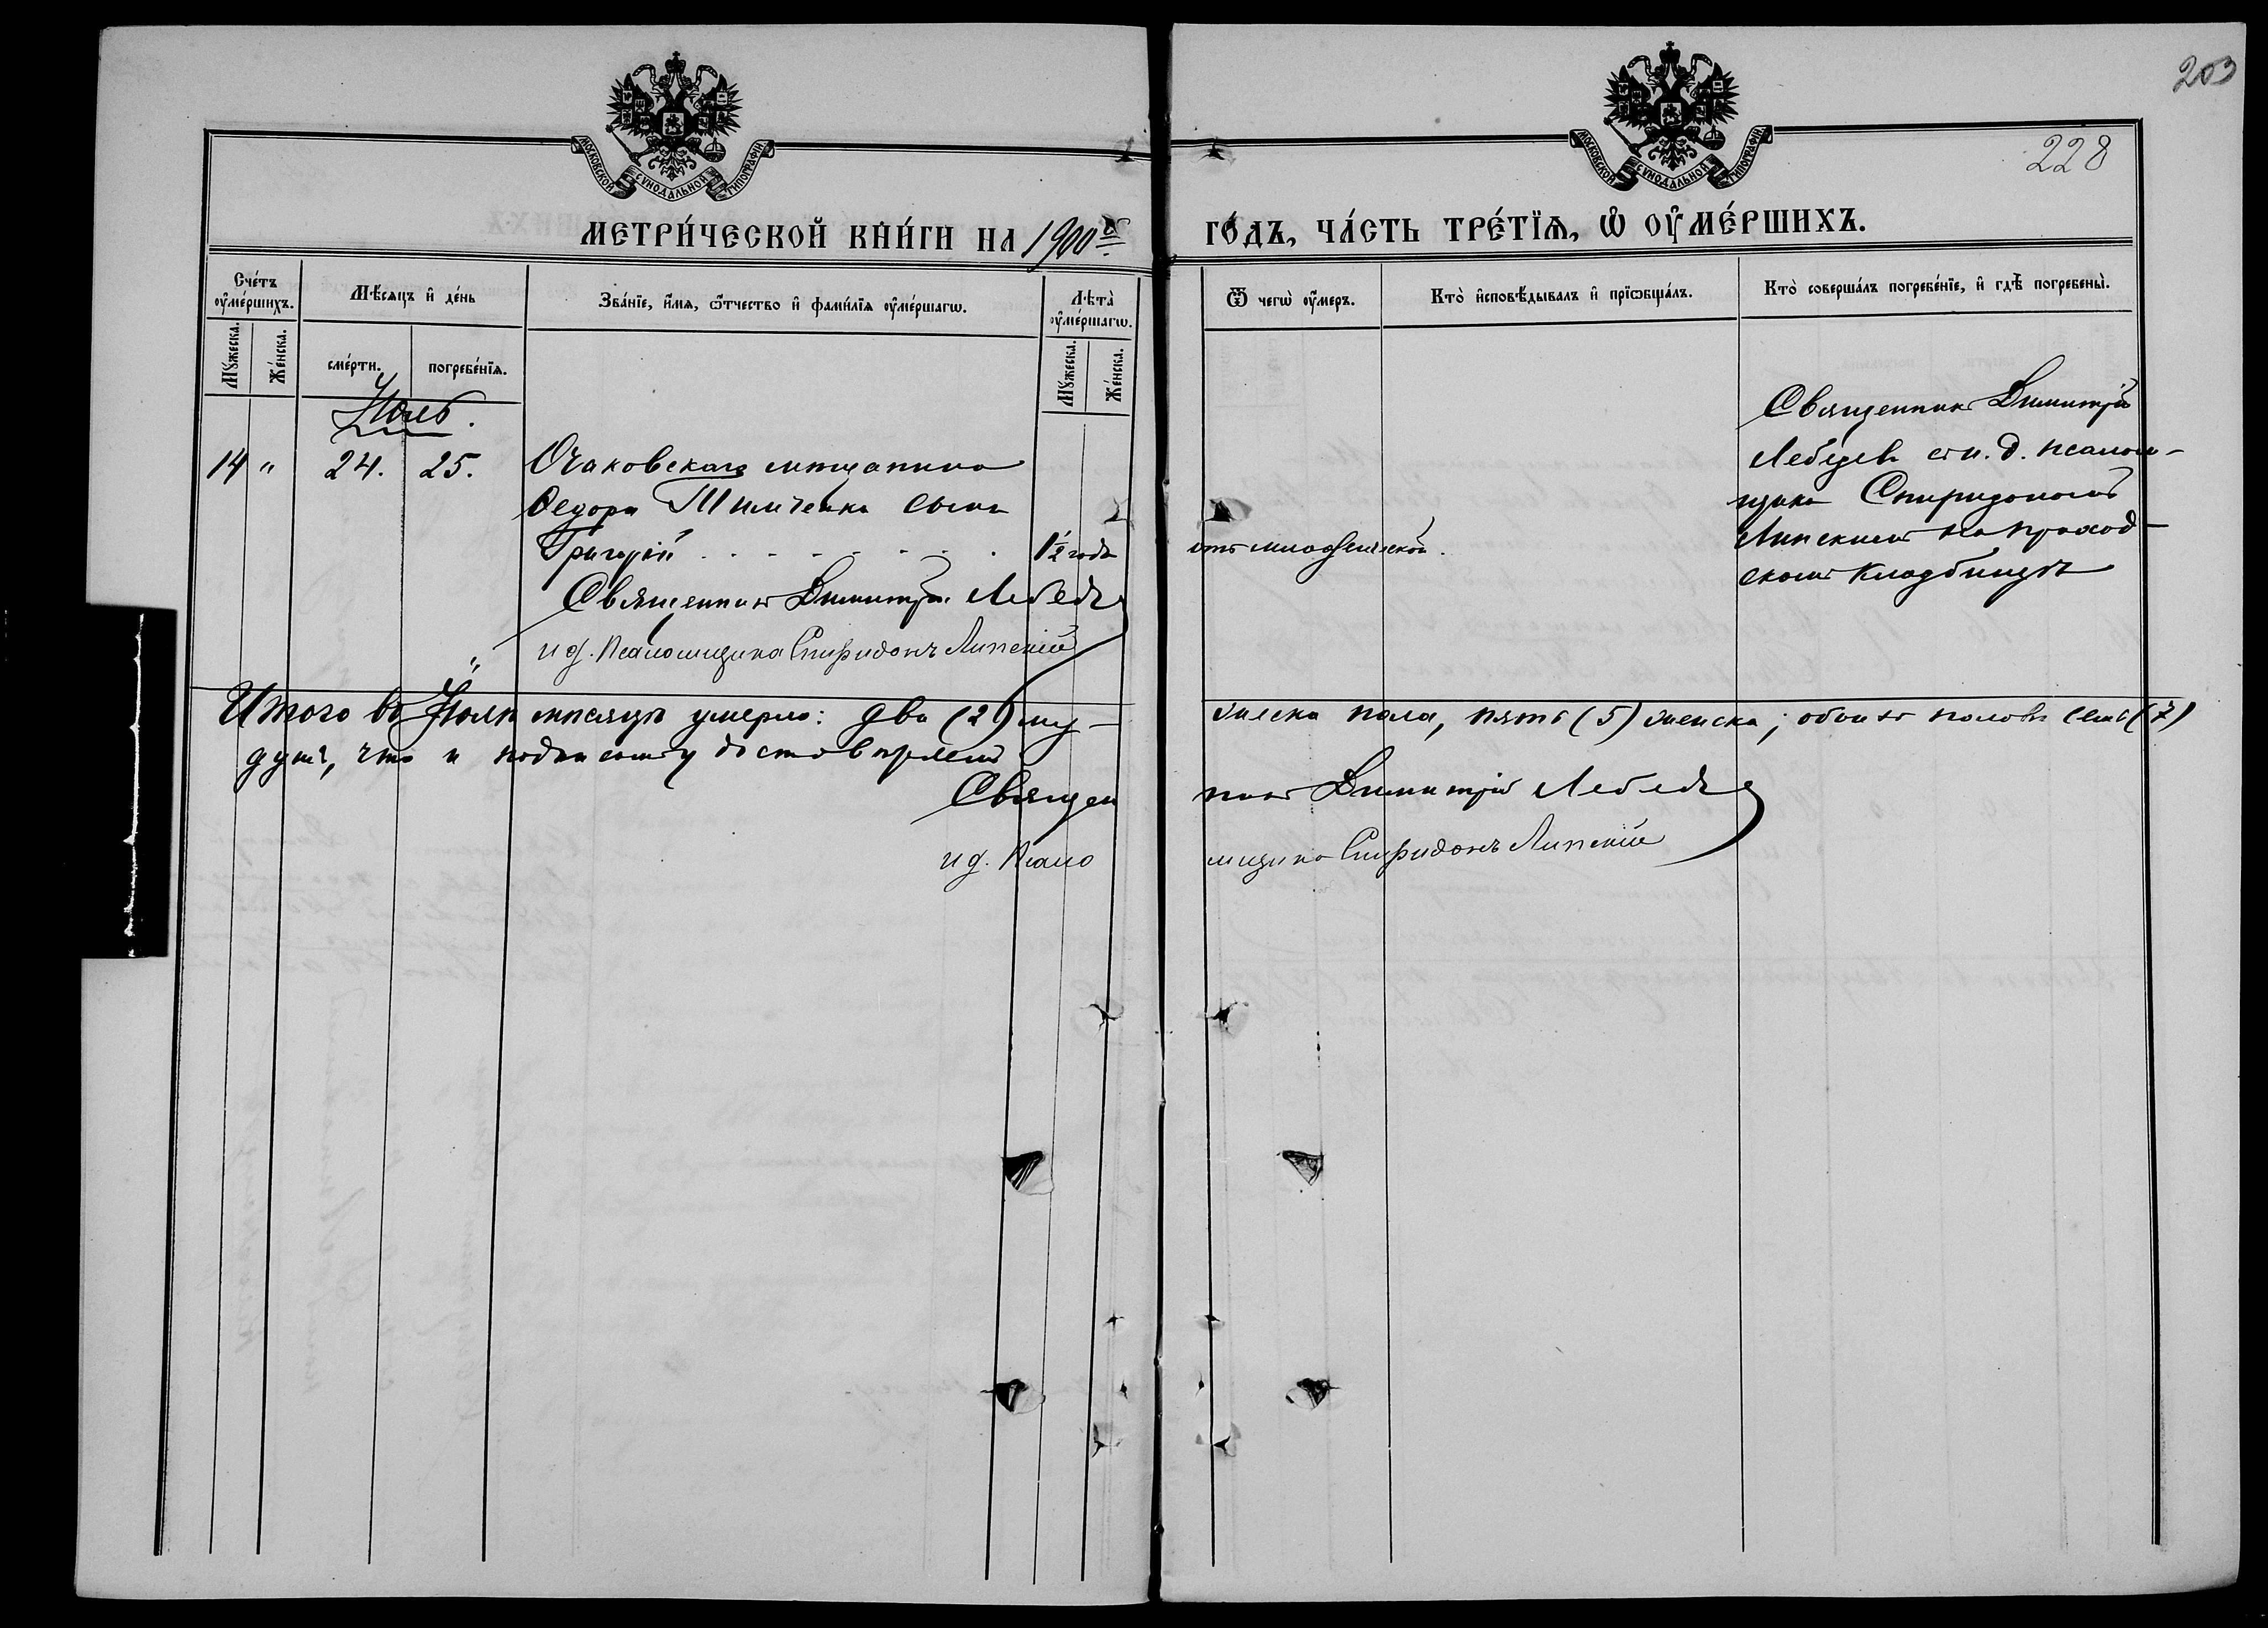 203
228
МОСКОВСКОЙ СѴНОДАЛЬНОЙ ТИПОГРАФІИ
МОСКОВСКОЙ СѴНОДАЛЬНОЙ ТИПОГРАФІИ
МЕТРИ́ЧЕСКОЙ КНИ́ГИ НА 1900й ГО́ДЪ, ЧА́СТЬ ТРЕ́ТЇѦ, Ѡ ОУ҆МЕ́РШИХЪ.
Сче́тъ оу҆ме́ршихъ.
Мꙋ́жеска.
Же́нска.
Мѣ́сяцъ и҆ де́нь
сме́рти.
погребе́нїя.
Зва́нїе, и҆́мя, ѻ҆́тчество и҆ фами́лїя оу҆ме́ршагѡ.
Лѣта̀ оу҆ме́ршагѡ.
Мꙋ́жеска.
Же́нска.
Ѿ чегѡ̀ оу҆́меръ.
Кто̀ и҆сповѣ́дывалъ и҆ прїѡбща́лъ.
Кто̀ соверша́лъ погребе́нїе, и҆ гдѣ̀ погребены̀.
Іюль.
14 " 24. 25.
Очаковскаго мѣщанина
Ѳедора Тимченка сынъ
Григорій . . . . . . . 1½ года
отъ младенческой.
Священникъ Димитрій
Лебедевъ съ и. д. псалом-
щика Спиридономъ
Липскимъ на приход-
скомъ кладбищѣ
Священникъ Димитрій Лебедевъ
и д. Псаломщика Спиридонъ Липскій
Итого въ Іюлѣ мѣсяцѣ умерло: два (2) му-
жеска пола, пять (5) женска; обоихъ половъ семь (7)
душъ, что и подписомъ удостовѣряемъ
Священникъ Димитрій Лебедевъ
и д. Псаломщика Спиридонъ Липскій